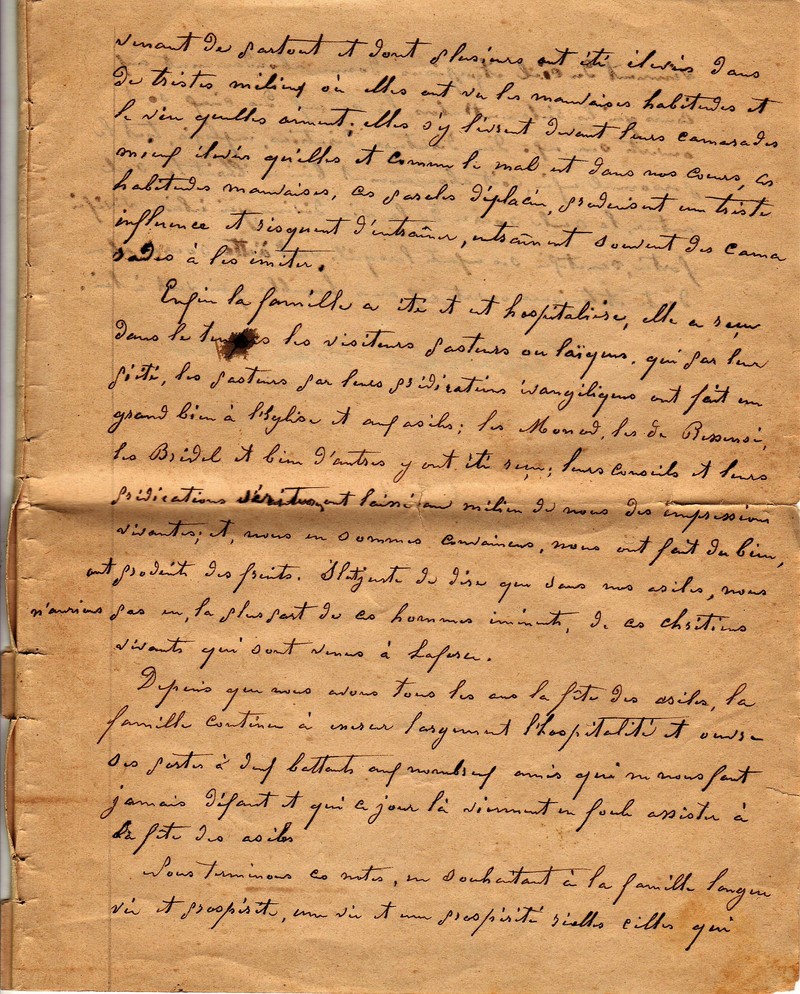 venant de partout et dont plusieurs ont été élevées dans
de tristes milieux où elles ont vu les mauvaises habitudes et
le vice qu'elles aiment; elles s'y livrent devant leurs camarades
mieux élevés qu'elles et comme le mal est dans nos coeurs, ces
habitudes mauvaises, ces paroles déplacées, produisent une triste
influence et risquent d'entraîner, entraînent souvent des cama
rades à les imiter.
Enfin la famille a été et est hospitalière, elle a reçu
dans le temps les visiteurs pasteurs ou laïques, qui par leur
piété, les pasteurs par leurs prédications évangéliques ont fait un
grand bien à l'Eglise et aux asiles; les Monod, les de Pressensé,
les Bridel et bien d'autres y ont été reçus; leurs conseils et leurs
prédications ont laissé au milieu de nous des impressions
vivantes; et, nous en sommes convaincus, nous ont fait du bien,
ont produits des fruits. Il est juste de dire que sans nos asiles, nous
n'aurions pas eu, la plus part de ces hommes éminents, de ces chrétiens
vivants qui sont venus à Laforce.
Depuis que nous avons tous les ans la fête des asiles, la
famille continue à exercer largement l'hospitalité et ouvre
ses portes à deux battants aux nombreux amis qui ne nous font
jamais défaut et qui ce jour là viennent en foule assister à
la fête des asiles
Nous terminons ces notes, en souhaitant à la famille longue
vie et prospérité, une vie et une prospérité réelles celles qui